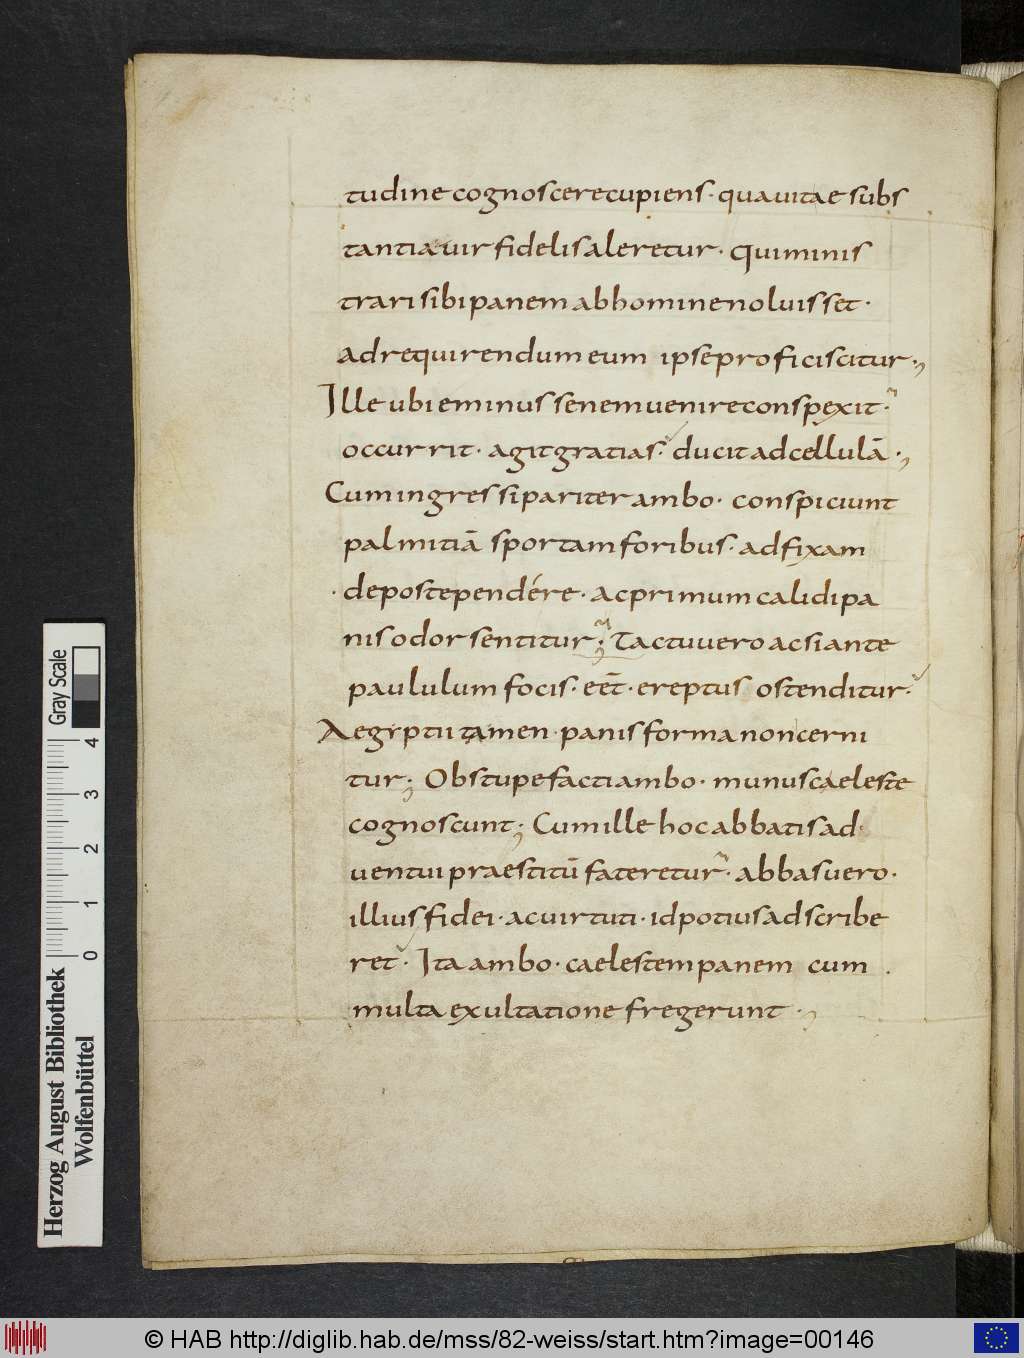 tudine cognoscere cupiens· qua uitae subs
tantia uir fidelis aleretur· Qui minis
trari sibi panem ab homine noluisset·
ad requirendum eum ipse proficiscitur·,
Ille ubi eminus senem uenire conspexit·
occurrit· agit gratias· ducit ad cellulā·,
Cum ingressi pariter ambo· conspiciunt
palmitiā sportam foribus· adfixam
· de poste pendére· ac primum calidi pa
nis odor sentitur; Tactu uero ac si ante
paululum focis· eēt· ereptus ostenditur·
Aegyptii tamen· panis forma non cerni
tur; Obstupefacti ambo· munus caeleste
cognoscunt; Cum ille hoc abbatis ad·
uentui praestitū fateretur· abbas uero·
illius fidei· ac uirtuti· id potius adscribe
ret· Ita ambo· caelestem panem cum ·
multa exultatione fregerunt ·,
Gray Scale
4
3
2
1
0
Herzog August Bibliothek
Wolfenbüttel
© HAB http://diglib.hab.de/mss/82-weiss/start.htm?image=00146